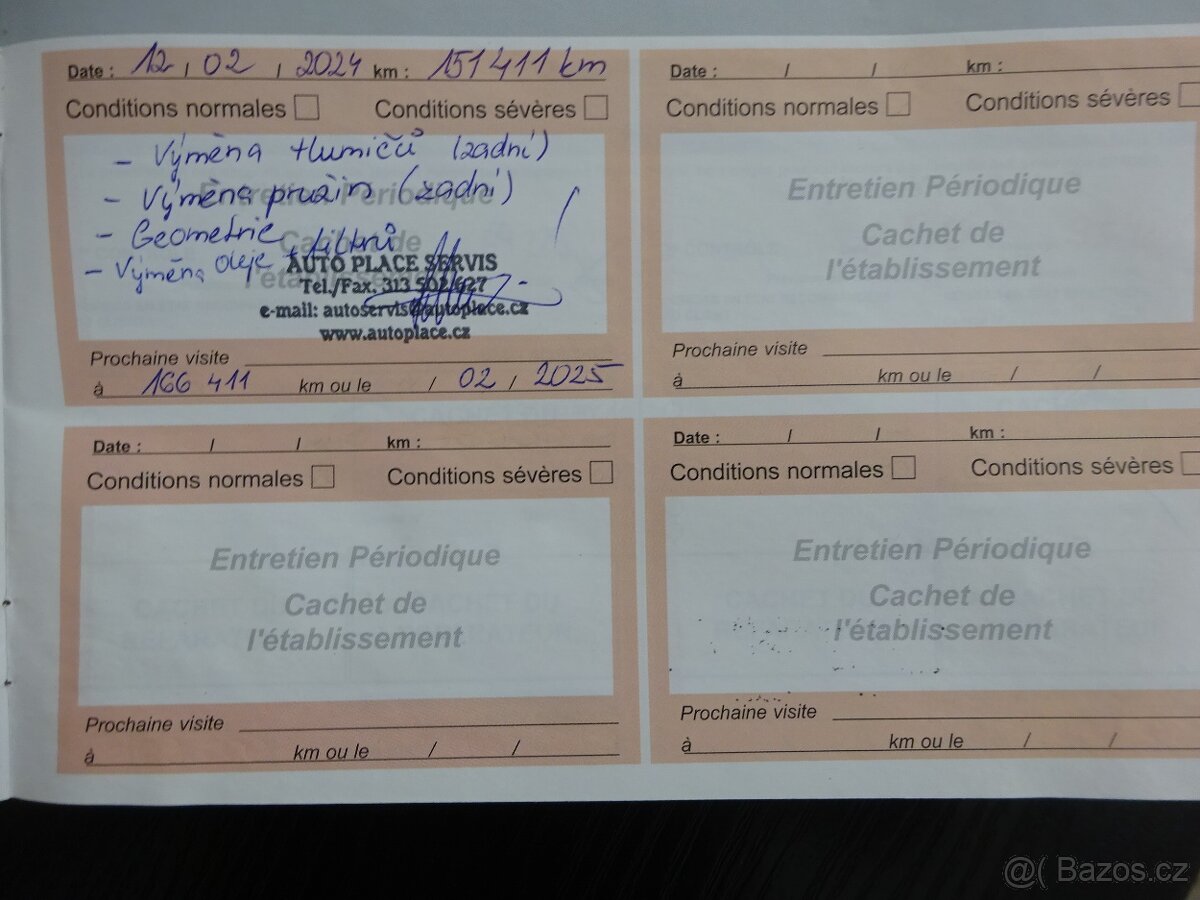 Date : 12 / 02 / 2024 km : 151 411 km
Conditions normales Conditions sévères
- Výměna tlumičů (zadní)
- Výměna pružin (zadní)
Entretien Périodique
- Geometrie
Cachet de
- Výměna oleje, filtrů
l'établissement
AUTO PLACE SERVIS
Tel./Fax. 313 502 627
e-mail: autoservis@autoplace.cz
www.autoplace.cz
Prochaine visite
à 166 411 km ou le / 02 / 2025
Date : / / km :
Conditions normales Conditions sévères
Entretien Périodique
Cachet de
l'établissement
Prochaine visite
à km ou le / /
Date : / / km :
Conditions normales Conditions sévères
Entretien Périodique
Cachet de
l'établissement
Prochaine visite
à km ou le / /
Date : / / km :
Conditions normales Conditions sévères
Entretien Périodique
Cachet de
l'établissement
Prochaine visite
à km ou le / /
@( Bazos.cz